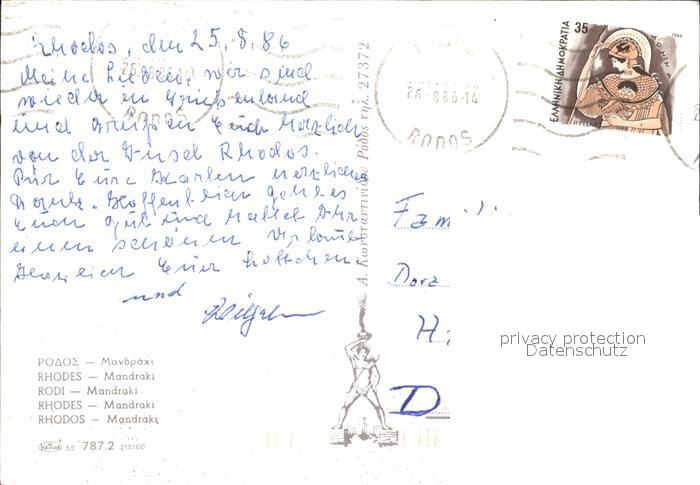 Rhodos, den 25.8.86
Meine Lieben, wir sind
wieder in Griechenland
und grüßen Euch herzlich
von der Insel Rhodos.
Für Eure Karten herzlichen
Dank. Hoffentlich geht es
Euch gut und hattet Ihr
einen schönen Urlaub
Herzlich Euer
und
ΡΟΔΟΣ — Μανδράκι
RHODES — Mandraki
RODI — Mandraki
RHODES — Mandraki
RHODOS — Mandraki
55 787.2 215160
Α. Κωνσταντινίδου Ρόδος τηλ. 27372
26-8 86-14
ΡΟΔΟΣ
ΡΟΔΟΣ
35
ΕΛΛΗΝΙΚΗ ΔΗΜΟΚΡΑΤΙΑ
ΑΘΗΝΑ
HELLAS
Fami
Dorz
H
D
privacy protection
Datenschutz